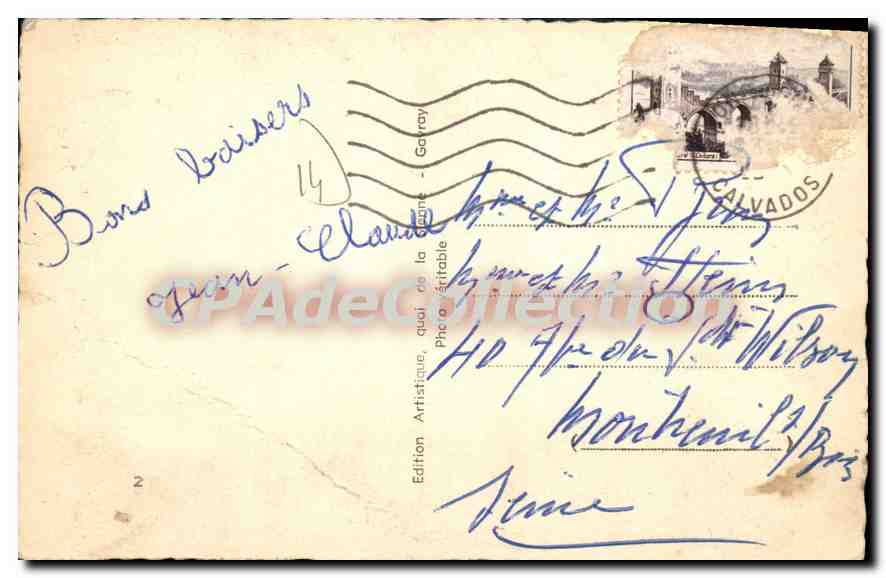 Bons baisers
14
Jean-Claude
CPAdeCollection
Edition Artistique, quai de la Sienne - Gavray
Photo véritable
2
CALVADOS
Mme et Mr
Mme et Mr
40 du Pdt Wilson
Montreuil s/ Bois
Seine